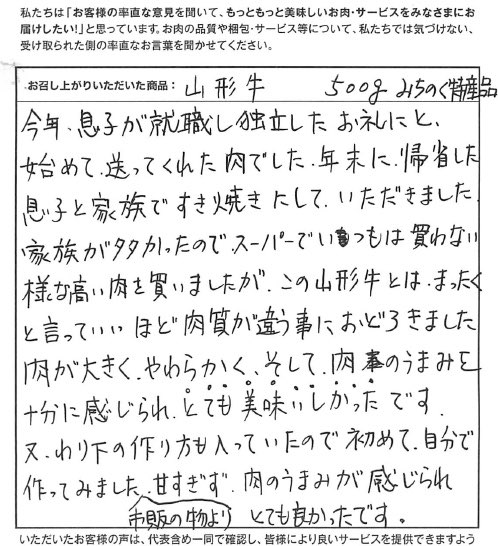 私たちは「お客様の率直な意見を聞いて、もっともっと美味しいお肉・サービスをみなさまにお
届けしたい!」と思っています。お肉の品質や梱包・サービス等について、私たちでは気づけない、
受け取られた側の率直なお言葉を聞かせてください。
お召し上がりいただいた商品: 山形牛 500g みちのく特産品
今年、息子が就職し独立したお礼にと、
始めて、送ってくれた肉でした。年末に、帰省した
息子と家族ですき焼きにして、いただきました。
家族が多かったので、スーパーでいつもは買わない
様な高い肉を買いましたが、この山形牛とは、まったく
と言っていいほど肉質が違う事におどろきました
肉が大きく、やわらかく、そして、肉のうまみを
十分に感じられ、とても美味いしかったです。
又、わり下の作り方も入っていたので初めて、自分で
作ってみました。甘すぎず、肉のうまみが感じられ
市販の物より とても良かったです。
いただいたお客様の声は、代表含め一同で確認し、皆様により良いサービスを提供できますよう